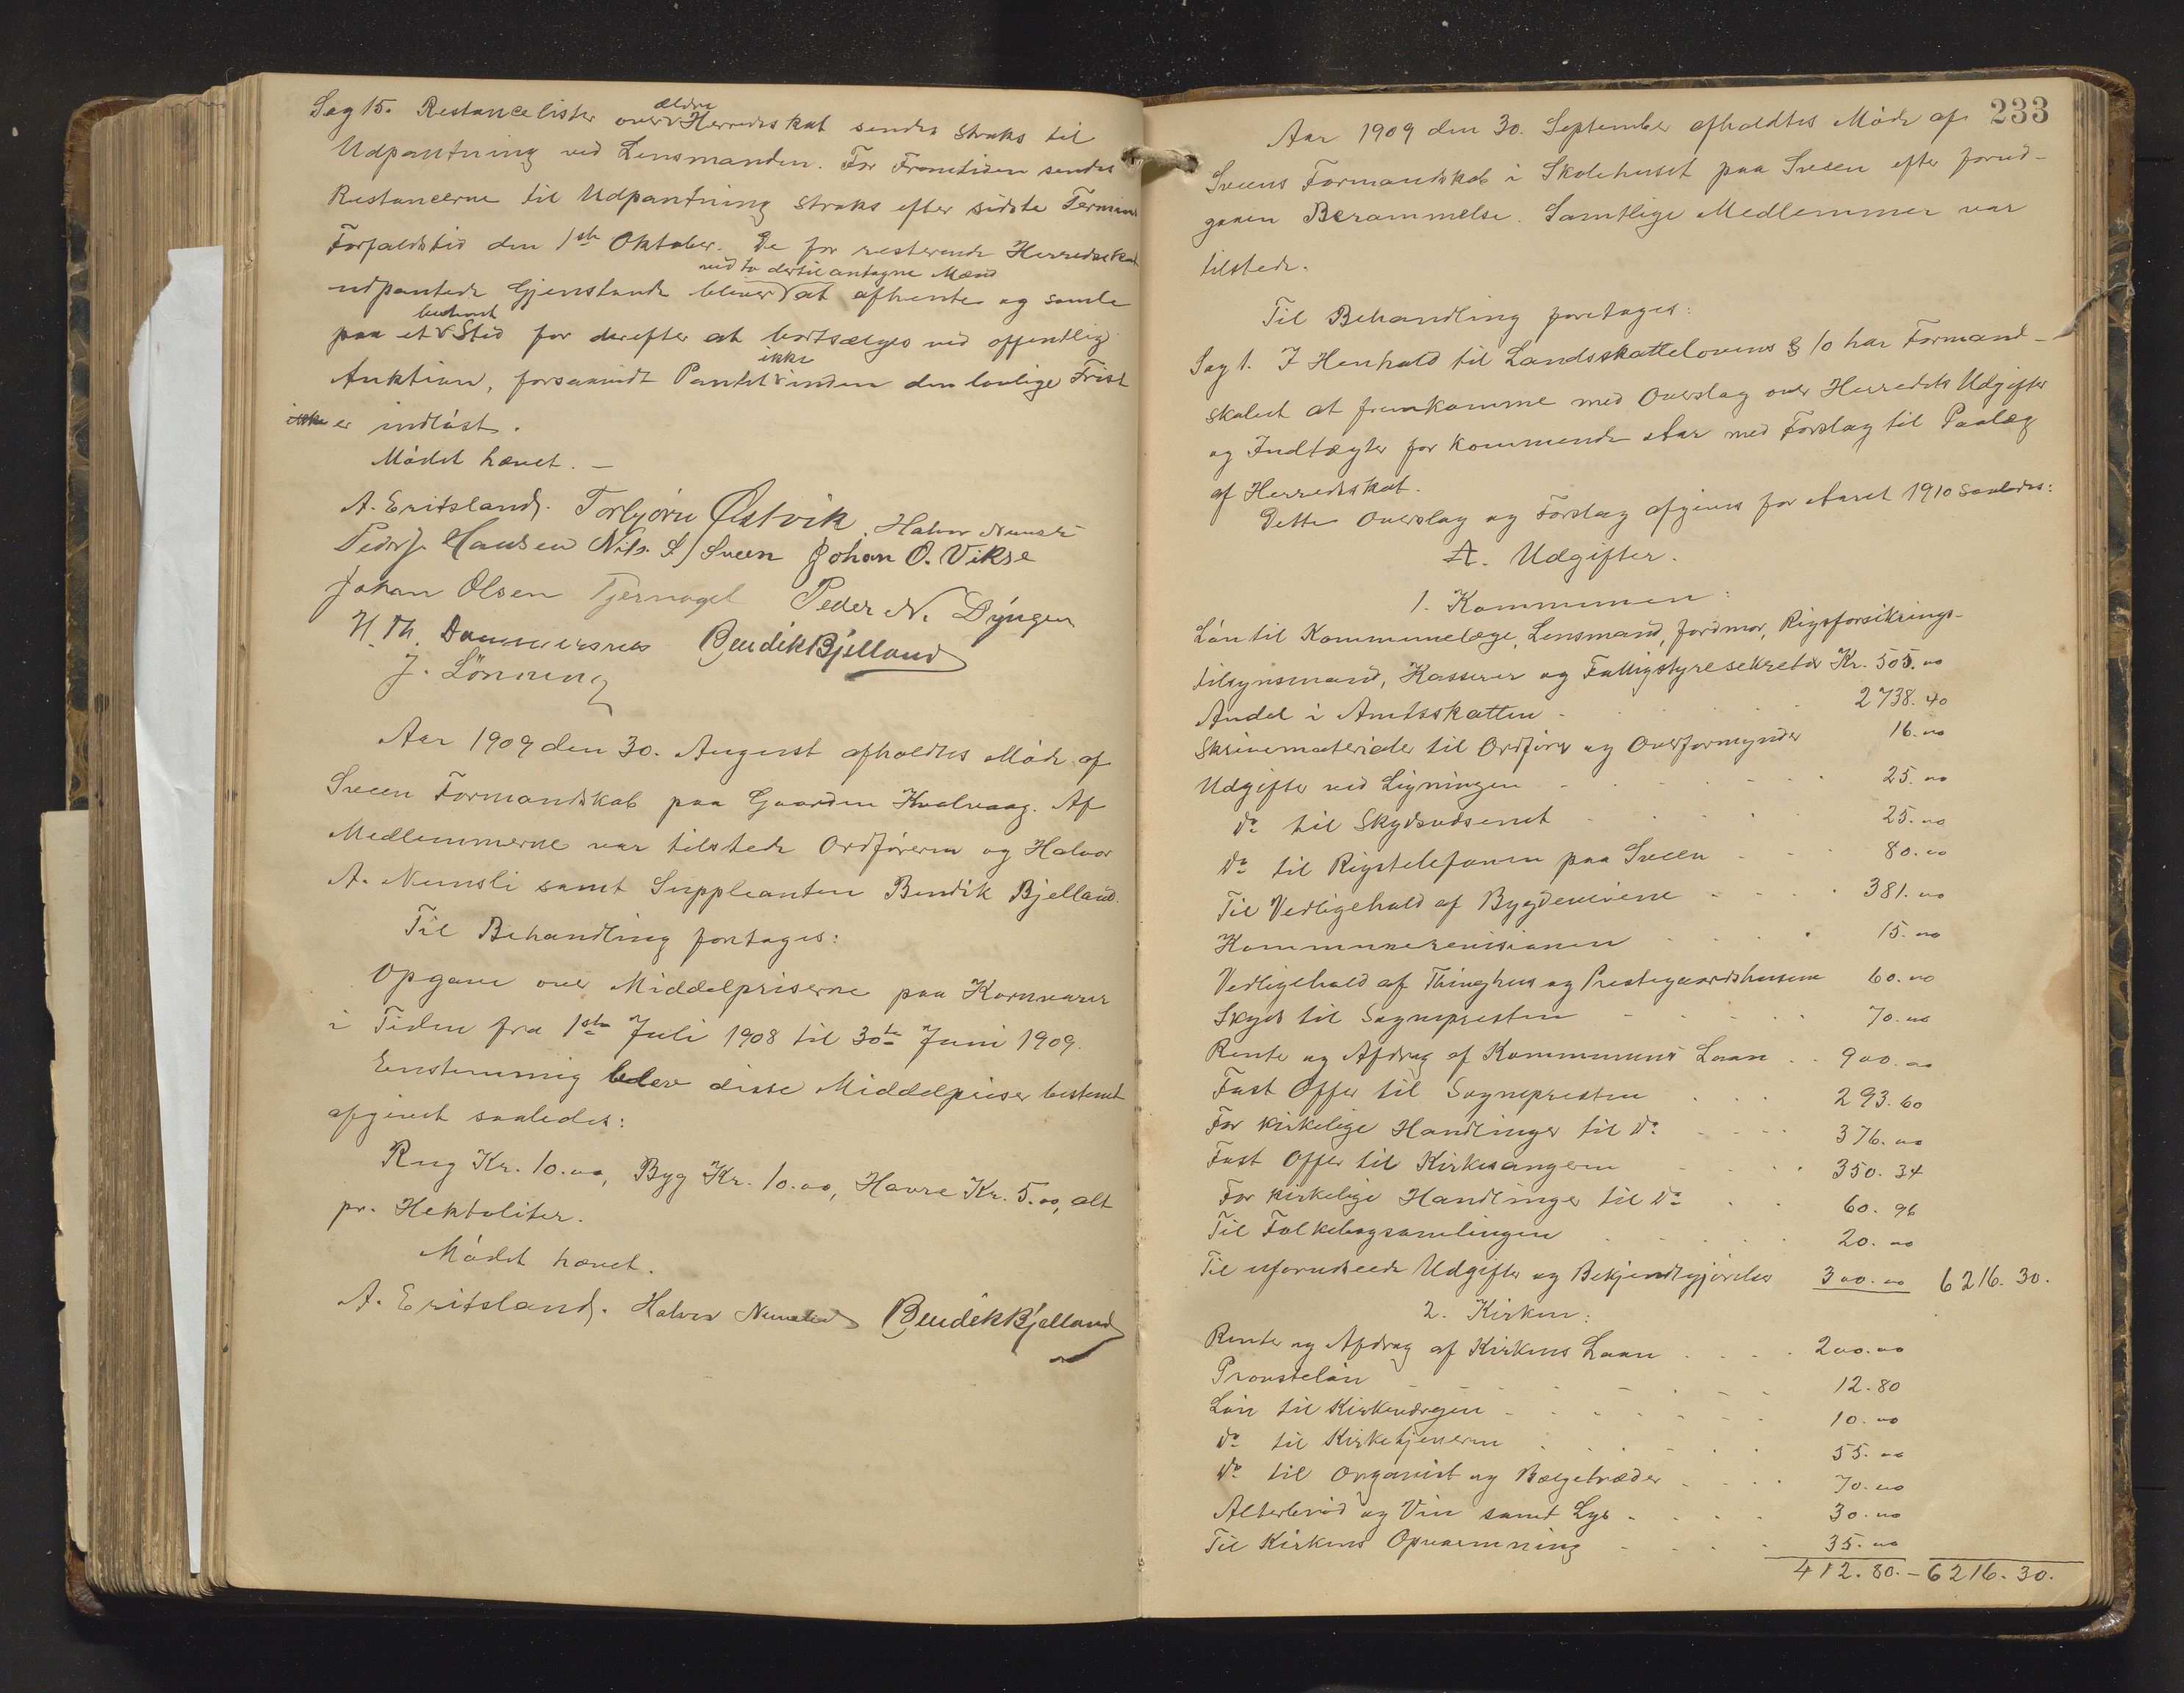 Sag 15. Restancelister over ældre Herredsskat sendes straks til
Udpantning ved Lensmanden. For Fremtiden sendes
Restancerne til Udpantning straks efter sidste Termins
Forfaldstid den 1ste Oktober. De for resterende Herredsskat
udpantede Gjenstande bliver ved to dertil antagne Mænd at afhente og samle
paa et bestemt Sted for derefter at bortsælges ved offentlig
Auktion, forsaavidt Pantet ikke inden den lovlige Frist
er indløst.
Mødet hævet. –
A. Eritsland. Torbjørn Østvik. Halvor Numsli
Peder J. Hansen Nils S. Sveen Johan O. Vikse
Johan Olsen Tjernagel Peder N. Dyngen
H. Th. Dommersnes Bendik Bjelland
J. Lönning
Aar 1909 den 30. August afholdtes Møde af
Sveen Formandskab paa Gaarden Kvalvaag. Af
Medlemmerne var tilstede Ordføreren og Halvor
A. Numsli samt Suppleanten Bendik Bjelland.
Til Behandling foretages:
Opgave over Middelpriserne paa Kornvarer
i Tiden fra 1ste Juli 1908 til 30te Juni 1909.
Enstemmig blev disse Middelpriser bestemt
afgivet saaledes:
Rug Kr. 10.00, Byg Kr. 10.00, Havre Kr. 5.00, alt
pr. Hektoliter.
Mødet hævet.
A. Eritsland. Halvor Numsli Bendik Bjelland
233
Aar 1909 den 30. September afholdtes Møde af
Sveens Formandskab i Skolehuset paa Sveen efter forud-
gaaen Berammelse. Samtlige Medlemmer var
tilstede.
Til Behandling foretages:
Sag 1. I Henhold til Landsskattelovens § 10 har Formand-
skabet at fremkomme med Overslag over Herredets Udgifter
og Indtægter for kommende Aar med Forslag til Paalæg
af Herredsskat.
Dette Overslag og Forslag afgives for Aaret 1910 saaledes:
A. Udgifter.
1. Kommunen:
Løn til Kommunelæge, Lensmand, Jordmor, Rigsforsikrings-
tilsynsmand, Kasserer og Fattigstyresekretær Kr. 505.00
Andel i Amtsskatten 2738.40
Skrivematerialer til Ordfører og Overformynder 16.00
Udgifter ved Ligningen 25.00
do til Skydsvæsenet 25.00
do til Rigstelefonen paa Sveen 80.00
Til Vedligehold af Bygdeveiene 381.00
Kommunerevisionen 15.00
Vedligehold af Thinghus og Prestegaardshusene 60.00
Skyds til Sognepresten 70.00
Rente og Afdrag af Kommunens Laan 900.00
Fast Offer til Sognepresten 293.60
For kirkelige Handlinger til do 376.00
Fast Offer til Kirkesangeren 350.34
For kirkelige Handlinger til do 60.96
Til Folkebogsamlingen 20.00
Til uforudseede Udgifter og Bekjendtgjørelser 300.00 6216.30.
2. Kirken:
Renter og Afdrag af Kirkens Laan 200.00
Provsteløn 12.80
Løn til Kirkeværgen 10.00
do til Kirketjeneren 55.00
do til Organist og Bælgetræder 70.00
Alterbrød og Vin samt Lys 30.00
Til Kirkens Opvarmning 35.00
412.80. – 6216.30.